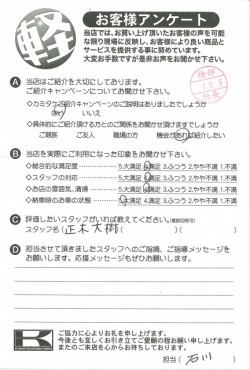 軽
お客様アンケート
当店では、お買い上げ頂いたお客様の声を可能
な限り現場に反映し、お客様により良い商品と
サービスを提供する事に努めています。
大変お手数ですが是非お声をお聞かせ下さい。
A 当店はご紹介を大切にしております。
ご紹介キャンペーンについてお聞かせ下さい。
◇カミタケご紹介キャンペーンのご説明はありましたでしょうか
はい いいえ
◇具体的にご紹介頂ける方とのご関係をお聞かせ頂けますでしょうか
ご親族 ご友人 職場の方 機会があれば紹介したい
B 当店を実際にご利用になった印象をお聞かせ下さい。
◇総合的な満足度 5.大満足 4.満足 3.ふつう 2.やや不満 1.不満
◇スタッフの対応 5.大満足 4.満足 3.ふつう 2.やや不満 1.不満
◇お店の雰囲気、清掃 5.大満足 4.満足 3.ふつう 2.やや不満 1.不満
◇納車時のお車の状態 5.大満足 4.満足 3.ふつう 2.やや不満 1.不満
C 評価したいスタッフがいれば教えてください。(複数回答可)
スタッフ名( 正木大樹 )
D 担当させて頂きましたスタッフへのご指摘、ご指導メッセージを
お願いします。応援メッセージもぜひお願いします。
K
ご協力に心よりお礼を申し上げます。
今後とも宜しくお引き立てご愛顧の程お願い申し上げます。
またのご来店を心からお待ちしております。
担当( 石川 )